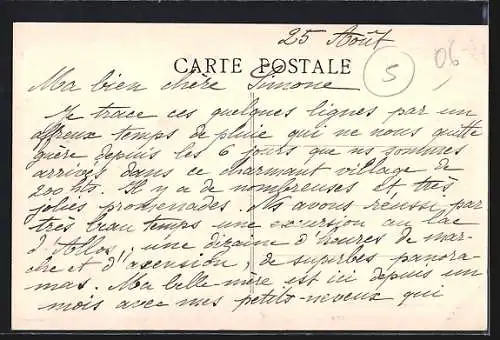 25 Août
CARTE POSTALE
5
06
Ma bien chère Simone
Je trace ces quelques lignes par un
affreux temps de pluie qui ne nous quitte
guère depuis les 6 jours que ns sommes
arrivés dans ce charmant village de
200 hts. Il y a de nombreuses et très
jolies promenades. Ns avons réussi par
très beau temps une excursion au lac
d'Allos, une dizaine d'heures de mar-
che et d'ascension, de superbes panora-
mas. Ma belle mère est ici depuis un
mois avec mes petits-neveux qui